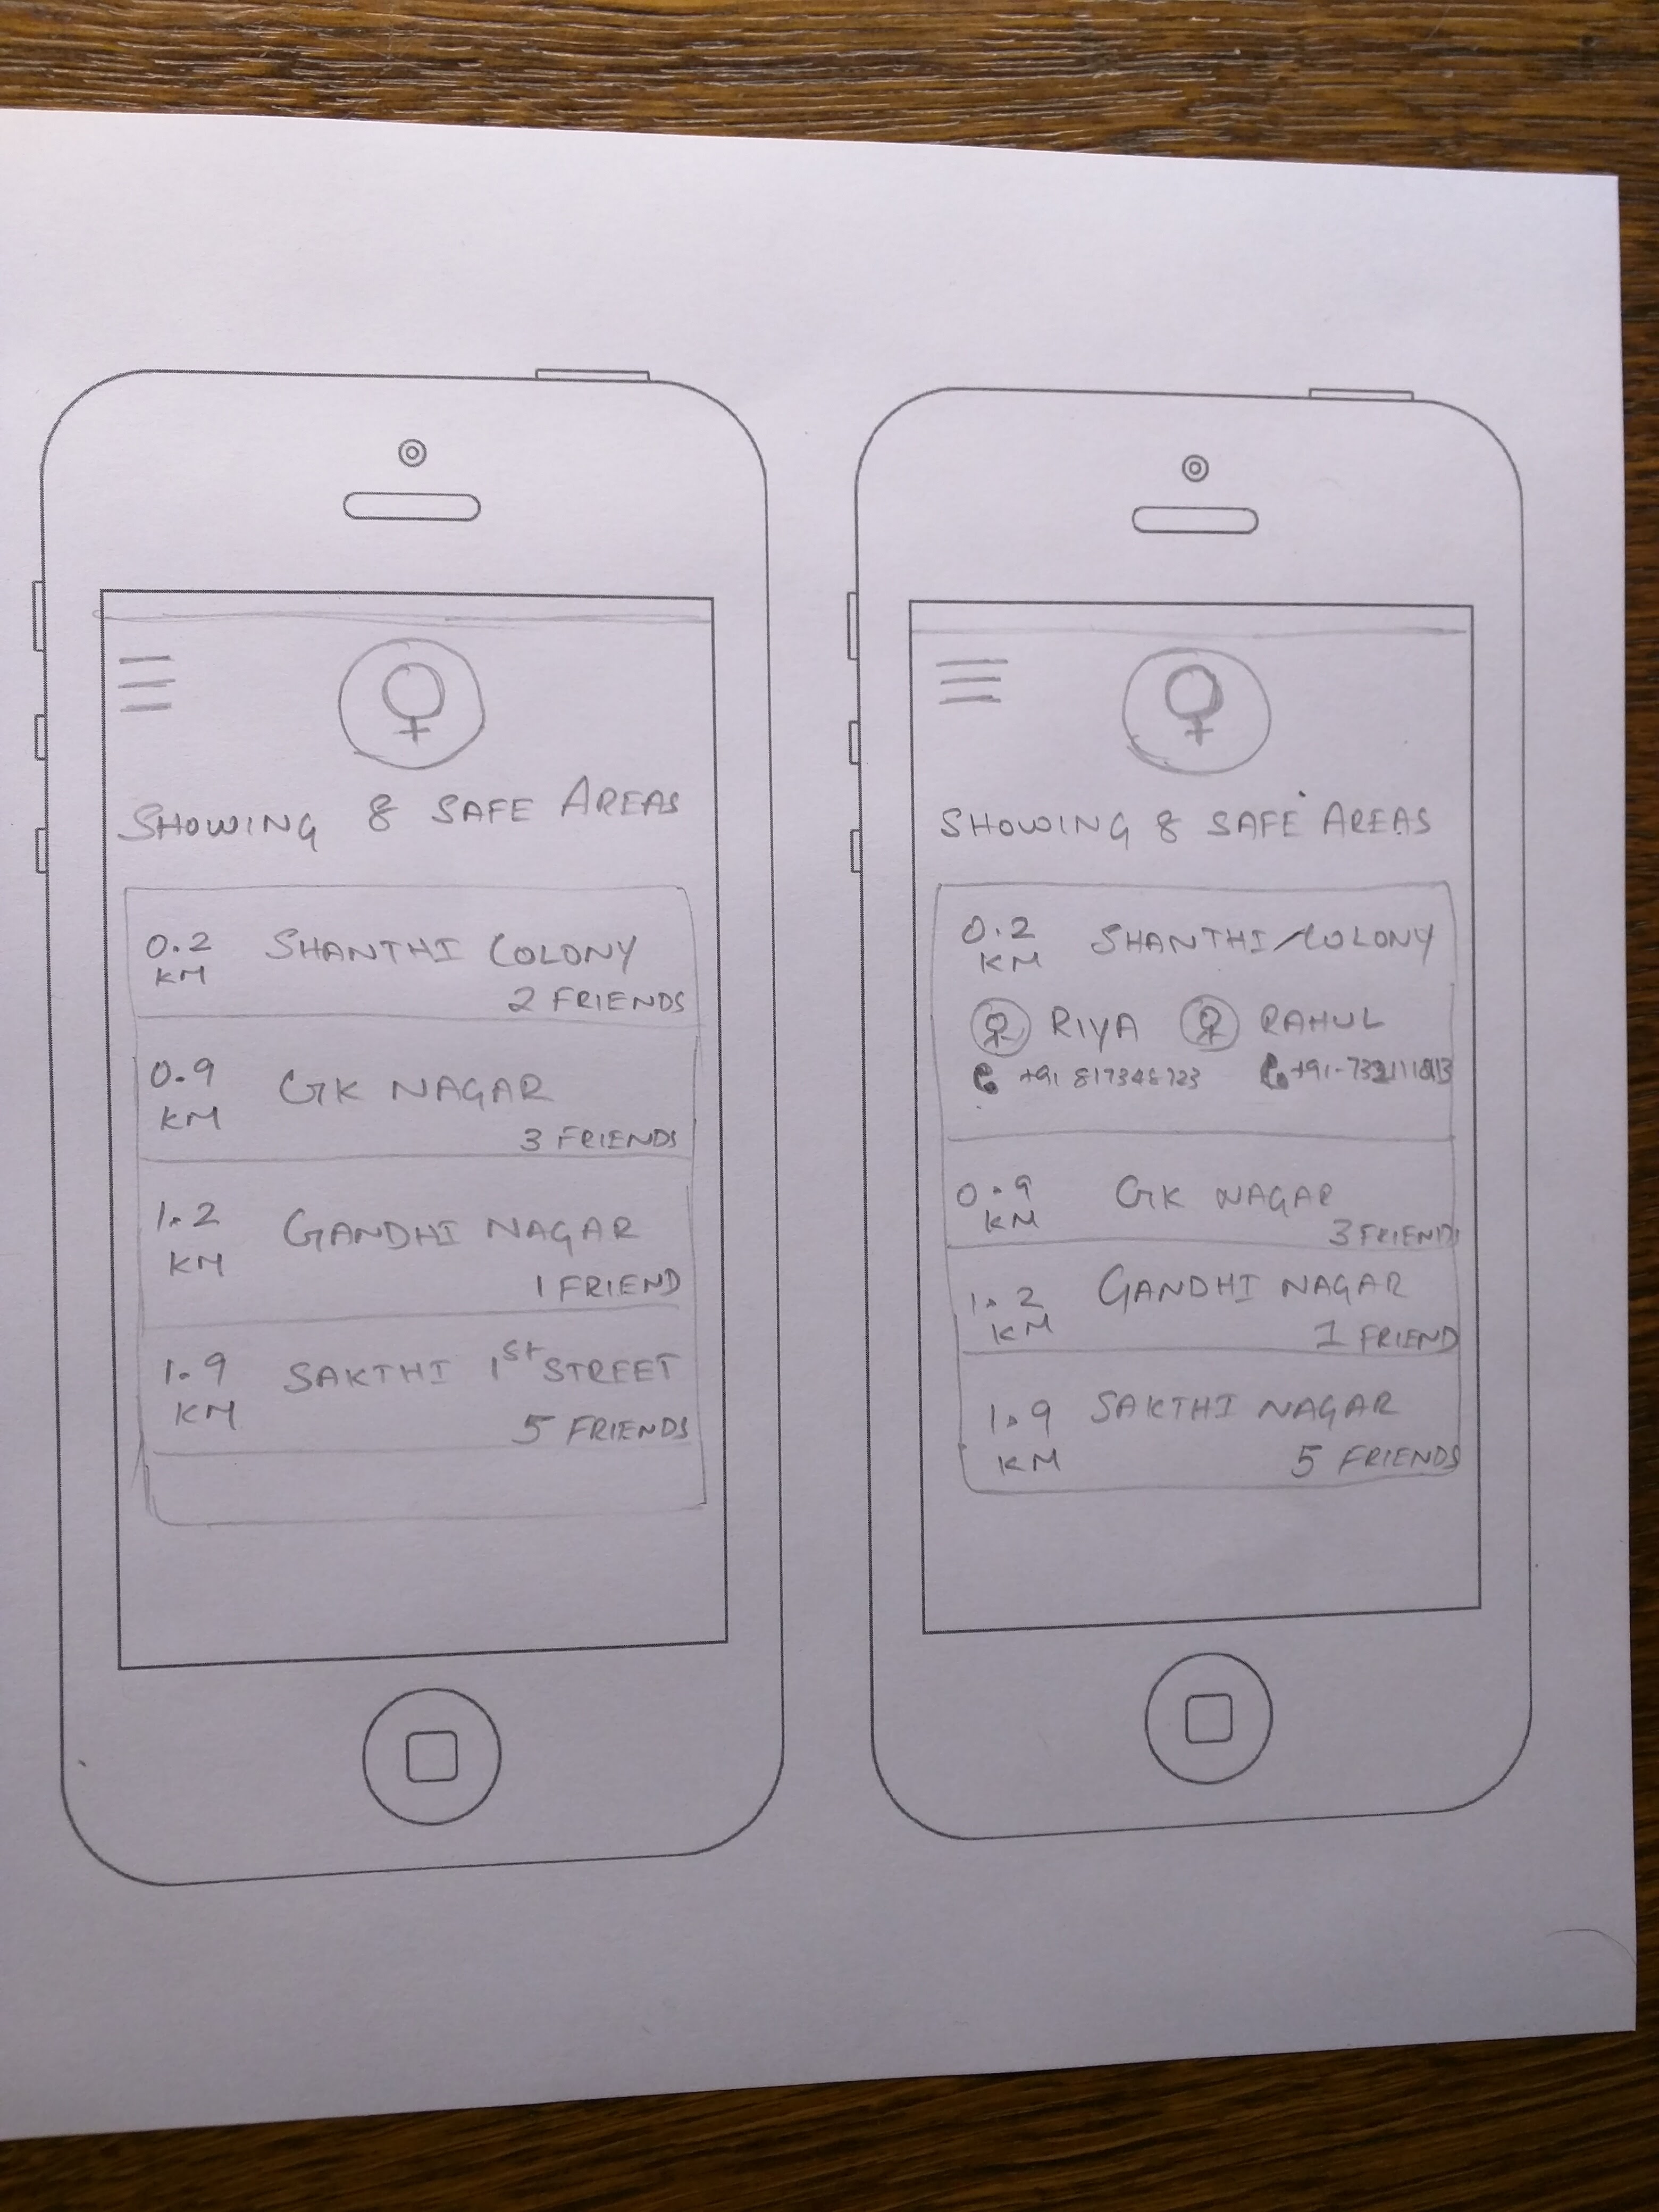 SHOWING 8 SAFE AREAS
0.2 KM SHANTHI COLONY
2 FRIENDS
0.9 KM GK NAGAR
3 FRIENDS
1.2 KM GANDHI NAGAR
1 FRIEND
1.9 KM SAKTHI 1st STREET
5 FRIENDS
SHOWING 8 SAFE AREAS
0.2 KM SHANTHI COLONY
RIYA RAHUL
+91 817346723
0.9 KM GK NAGAR
3 FRIENDS
1.2 KM GANDHI NAGAR
1 FRIEND
1.9 KM SAKTHI NAGAR
5 FRIENDS